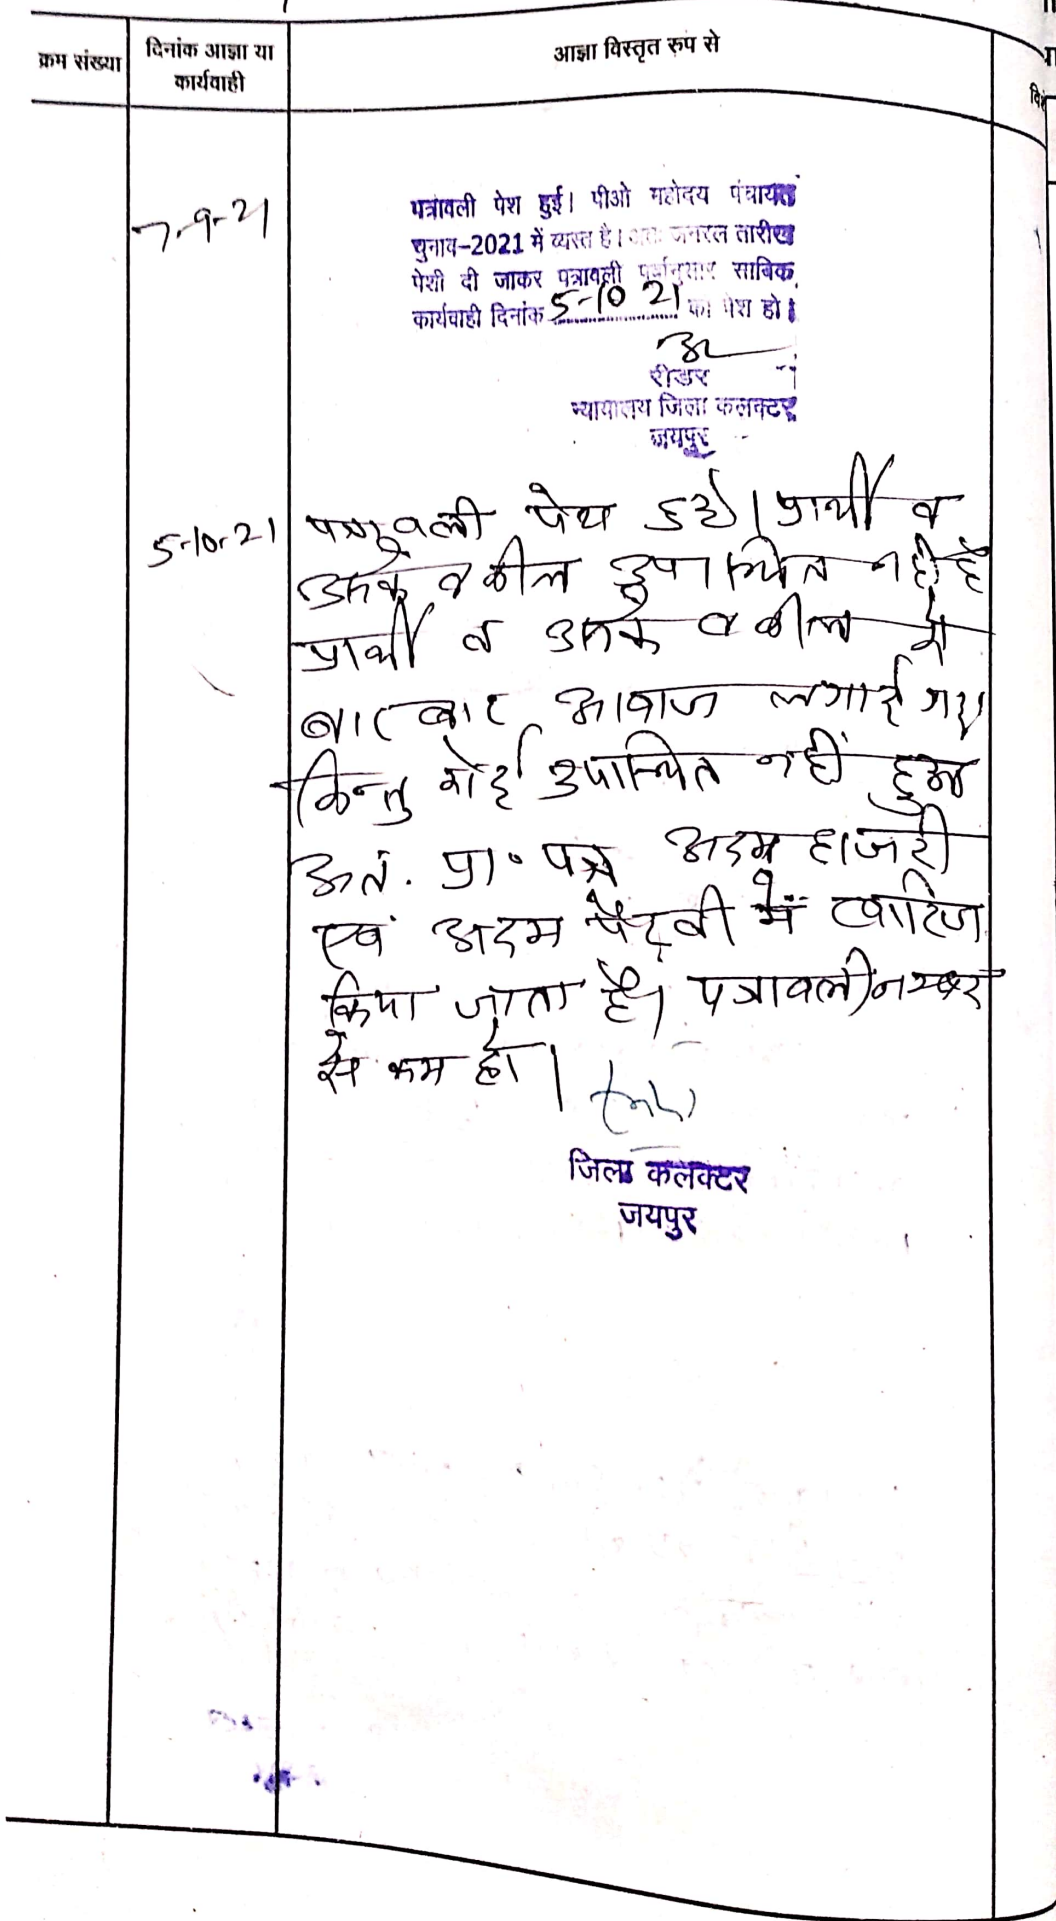 क्रम संख्या
दिनांक आज्ञा या
कार्यवाही
आज्ञा विस्तृत रुप से
7-9-21
पत्रावली पेश हुई। पीओ महोदय पंचायत
चुनाव-2021 में व्यस्त है। अतः जनरल तारीख
पेशी दी जाकर पत्रावली पूर्वानुसार साबिक
कार्यवाही दिनांक 5-10 21 को पेश हो।
रीडर
न्यायालय जिला कलक्टर
जयपुर
5-10-21
पत्रावली पेश हुई। प्रार्थी व
उनके वकील उपस्थित नहीं है
प्रार्थी व उनके वकील को
बार बार आवाज लगाई गई
किन्तु कोई उपस्थित नहीं हुआ
अतं. प्रा॰ पत्र अदम हाजरी
एवं अदम पैरवी में खारिज
किया जाता है। पत्रावली नम्बर
से कम हो।
जिला कलक्टर
जयपुर